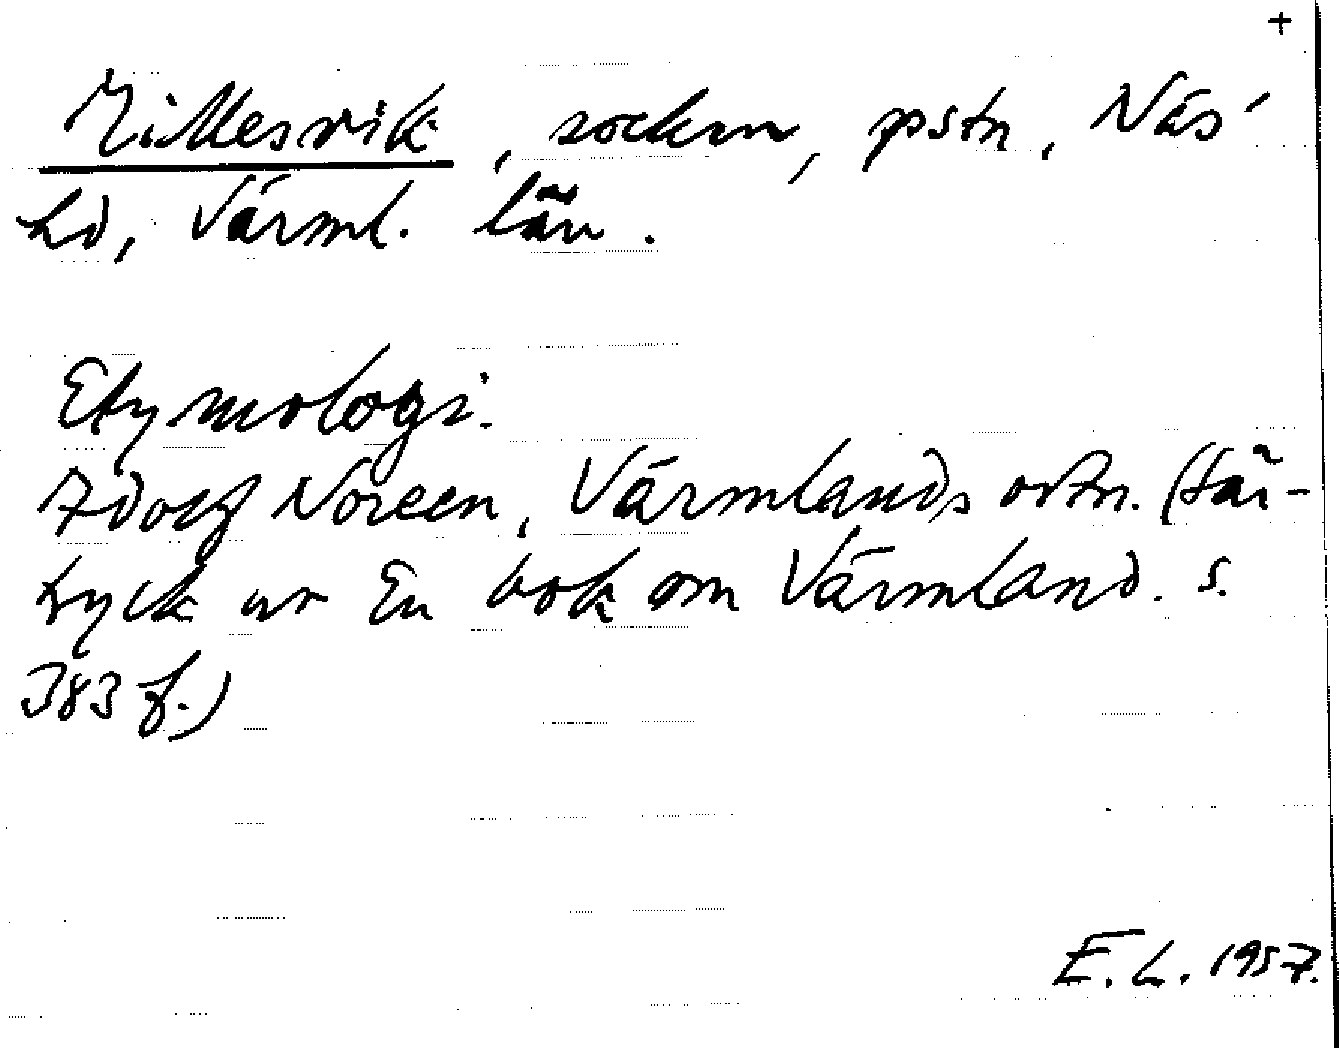 +
Millesvik, socken, pstn, Näs
hd, Värml. län.
Etymologi.
Adolf Noreen, Värmlands ortn. (Sär-
tryck ur En bok om Värmland. s.
383 f.)
E. L. 1957.